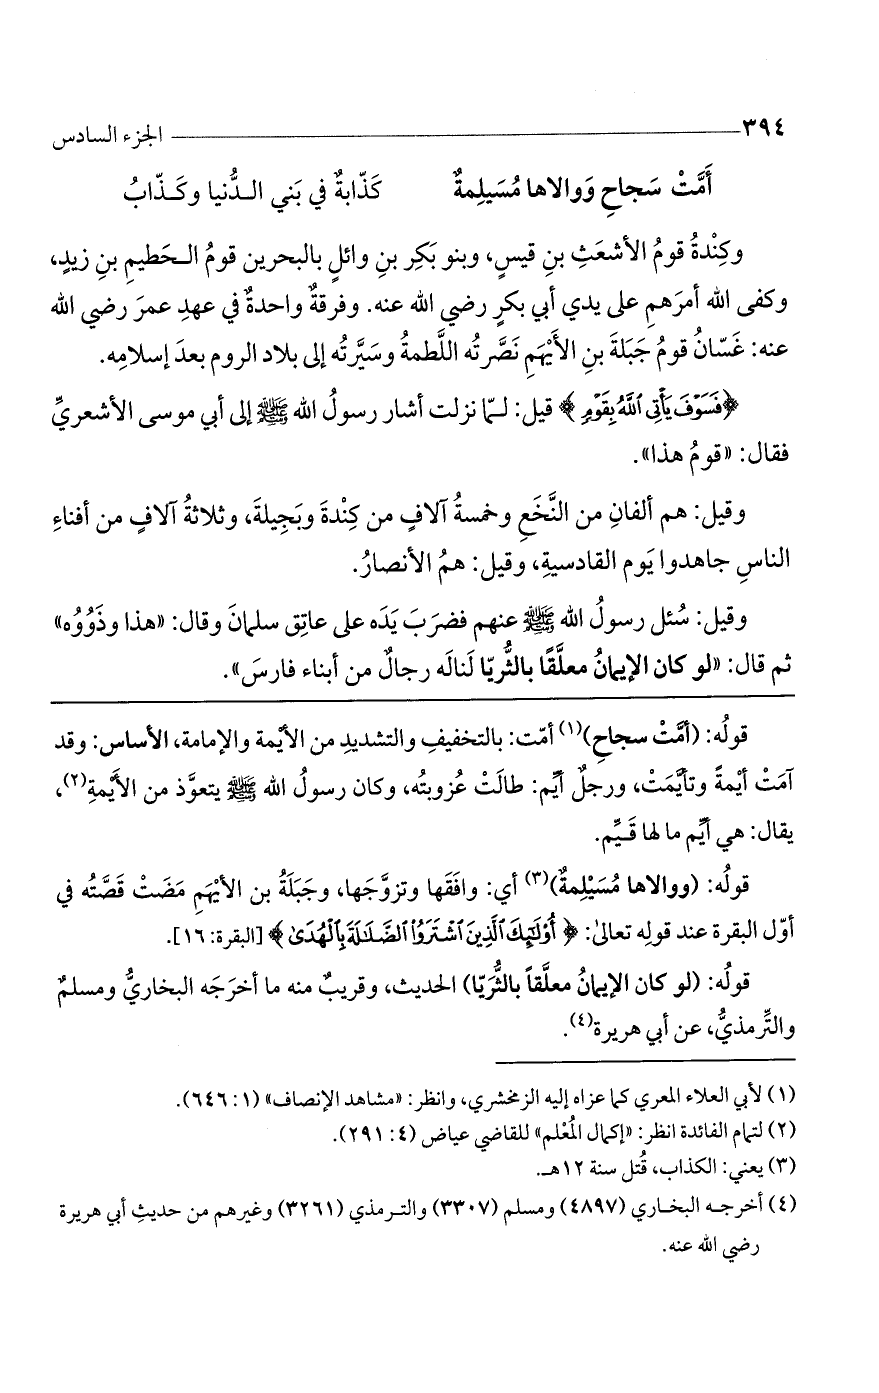 ٣٩٤ الجزء السادس
أَمَّتْ سَجاحِ وَوالاها مُسَيلِمةٌ كَذّابةٌ في بَني الـدُّنيا وكَـذّابُ
وكِنْدةُ قومُ الأشعَثِ بنِ قيسٍ، وبنو بَكرِ بنِ وائلٍ بالبحرين قومُ الـحَطيمِ بنِ زيدٍ،
وكفى الله أمرَهم على يدي أبي بكرٍ رضي الله عنه. وفرقةٌ واحدةٌ في عهدِ عمرَ رضي الله
عنه: غَسّانُ قومُ جَبَلةَ بنِ الأَيْهَمِ نَصَّرتْه اللَّطمةُ وسَيَّرتْه إلى بلاد الروم بعدَ إسلامِه.
﴿فَسَوْفَ يَأْتِى ٱللَّهُ بِقَوْمٍ﴾ قيل: لـمّا نزلت أشار رسولُ الله ﷺ إلى أبي موسى الأشعريِّ
فقال: «قومُ هذا».
وقيل: هم ألفانِ من النَّخَعِ وخمسةُ آلافٍ من كِنْدةَ وبَجِيلةَ، وثلاثةُ آلافٍ من أفناءِ
الناسِ جاهدوا يَوم القادسيةِ، وقيل: همُ الأنصارُ.
وقيل: سُئل رسولُ الله ﷺ عنهم فضرَبَ يَدَه على عاتِق سلمانَ وقال: «هذا وذَوُوه»
ثم قال: «لو كان الإيمانُ معلَّقًا بالثُّريّا لَنالَه رجالٌ من أبناء فارسَ».
قولُه: (أمَّتْ سجاحِ)(١) أمّت: بالتخفيفِ والتشديدِ من الأيْمة والإمامة، الأساس: وقد
آمَتْ أيْمةً وتأيَّمَتْ، ورجلٌ أيّم: طالَتْ عُزوبتُه، وكان رسولُ الله ﷺ يتعوَّذ من الأَيْمةِ(٢)،
يقال: هي أيِّم ما لها قَـيِّم.
قولُه: (ووالاها مُسَيْلِمةٌ)(٣) أي: وافَقَها وتزوَّجَها، وجَبَلَةُ بن الأيْهَمِ مَضَتْ قصَّتُه في
أوّل البقرة عند قولِه تعالىٰ: ﴿أُوْلَٰٓئِكَ ٱلَّذِينَ ٱشْتَرَوُا۟ ٱلضَّلَٰلَةَ بِٱلْهُدَىٰ﴾ [البقرة: ١٦].
قولُه: (لو كان الإيمانُ معلَّقاً بالثُّريّا) الحديث، وقريبٌ منه ما أخرَجَه البخاريُّ ومسلمٌ
والتِّرمذيُّ، عن أبي هريرة(٤).
(١) لأبي العلاء المعري كما عزاه إليه الزمخشري، وانظر: «مشاهد الإنصاف» (١: ٦٤٦).
(٢) لتمام الفائدة انظر: «إكمال المُعْلم» للقاضي عياض (٤: ٢٩١).
(٣) يعني: الكذاب، قُتل سنة ١٢هـ.
(٤) أخرجـه البخـاري (٤٨٩٧) ومسلم (٣٣٠٧) والتـرمذي (٣٢٦١) وغيرهم من حديثِ أبي هريرة
رضي الله عنه.